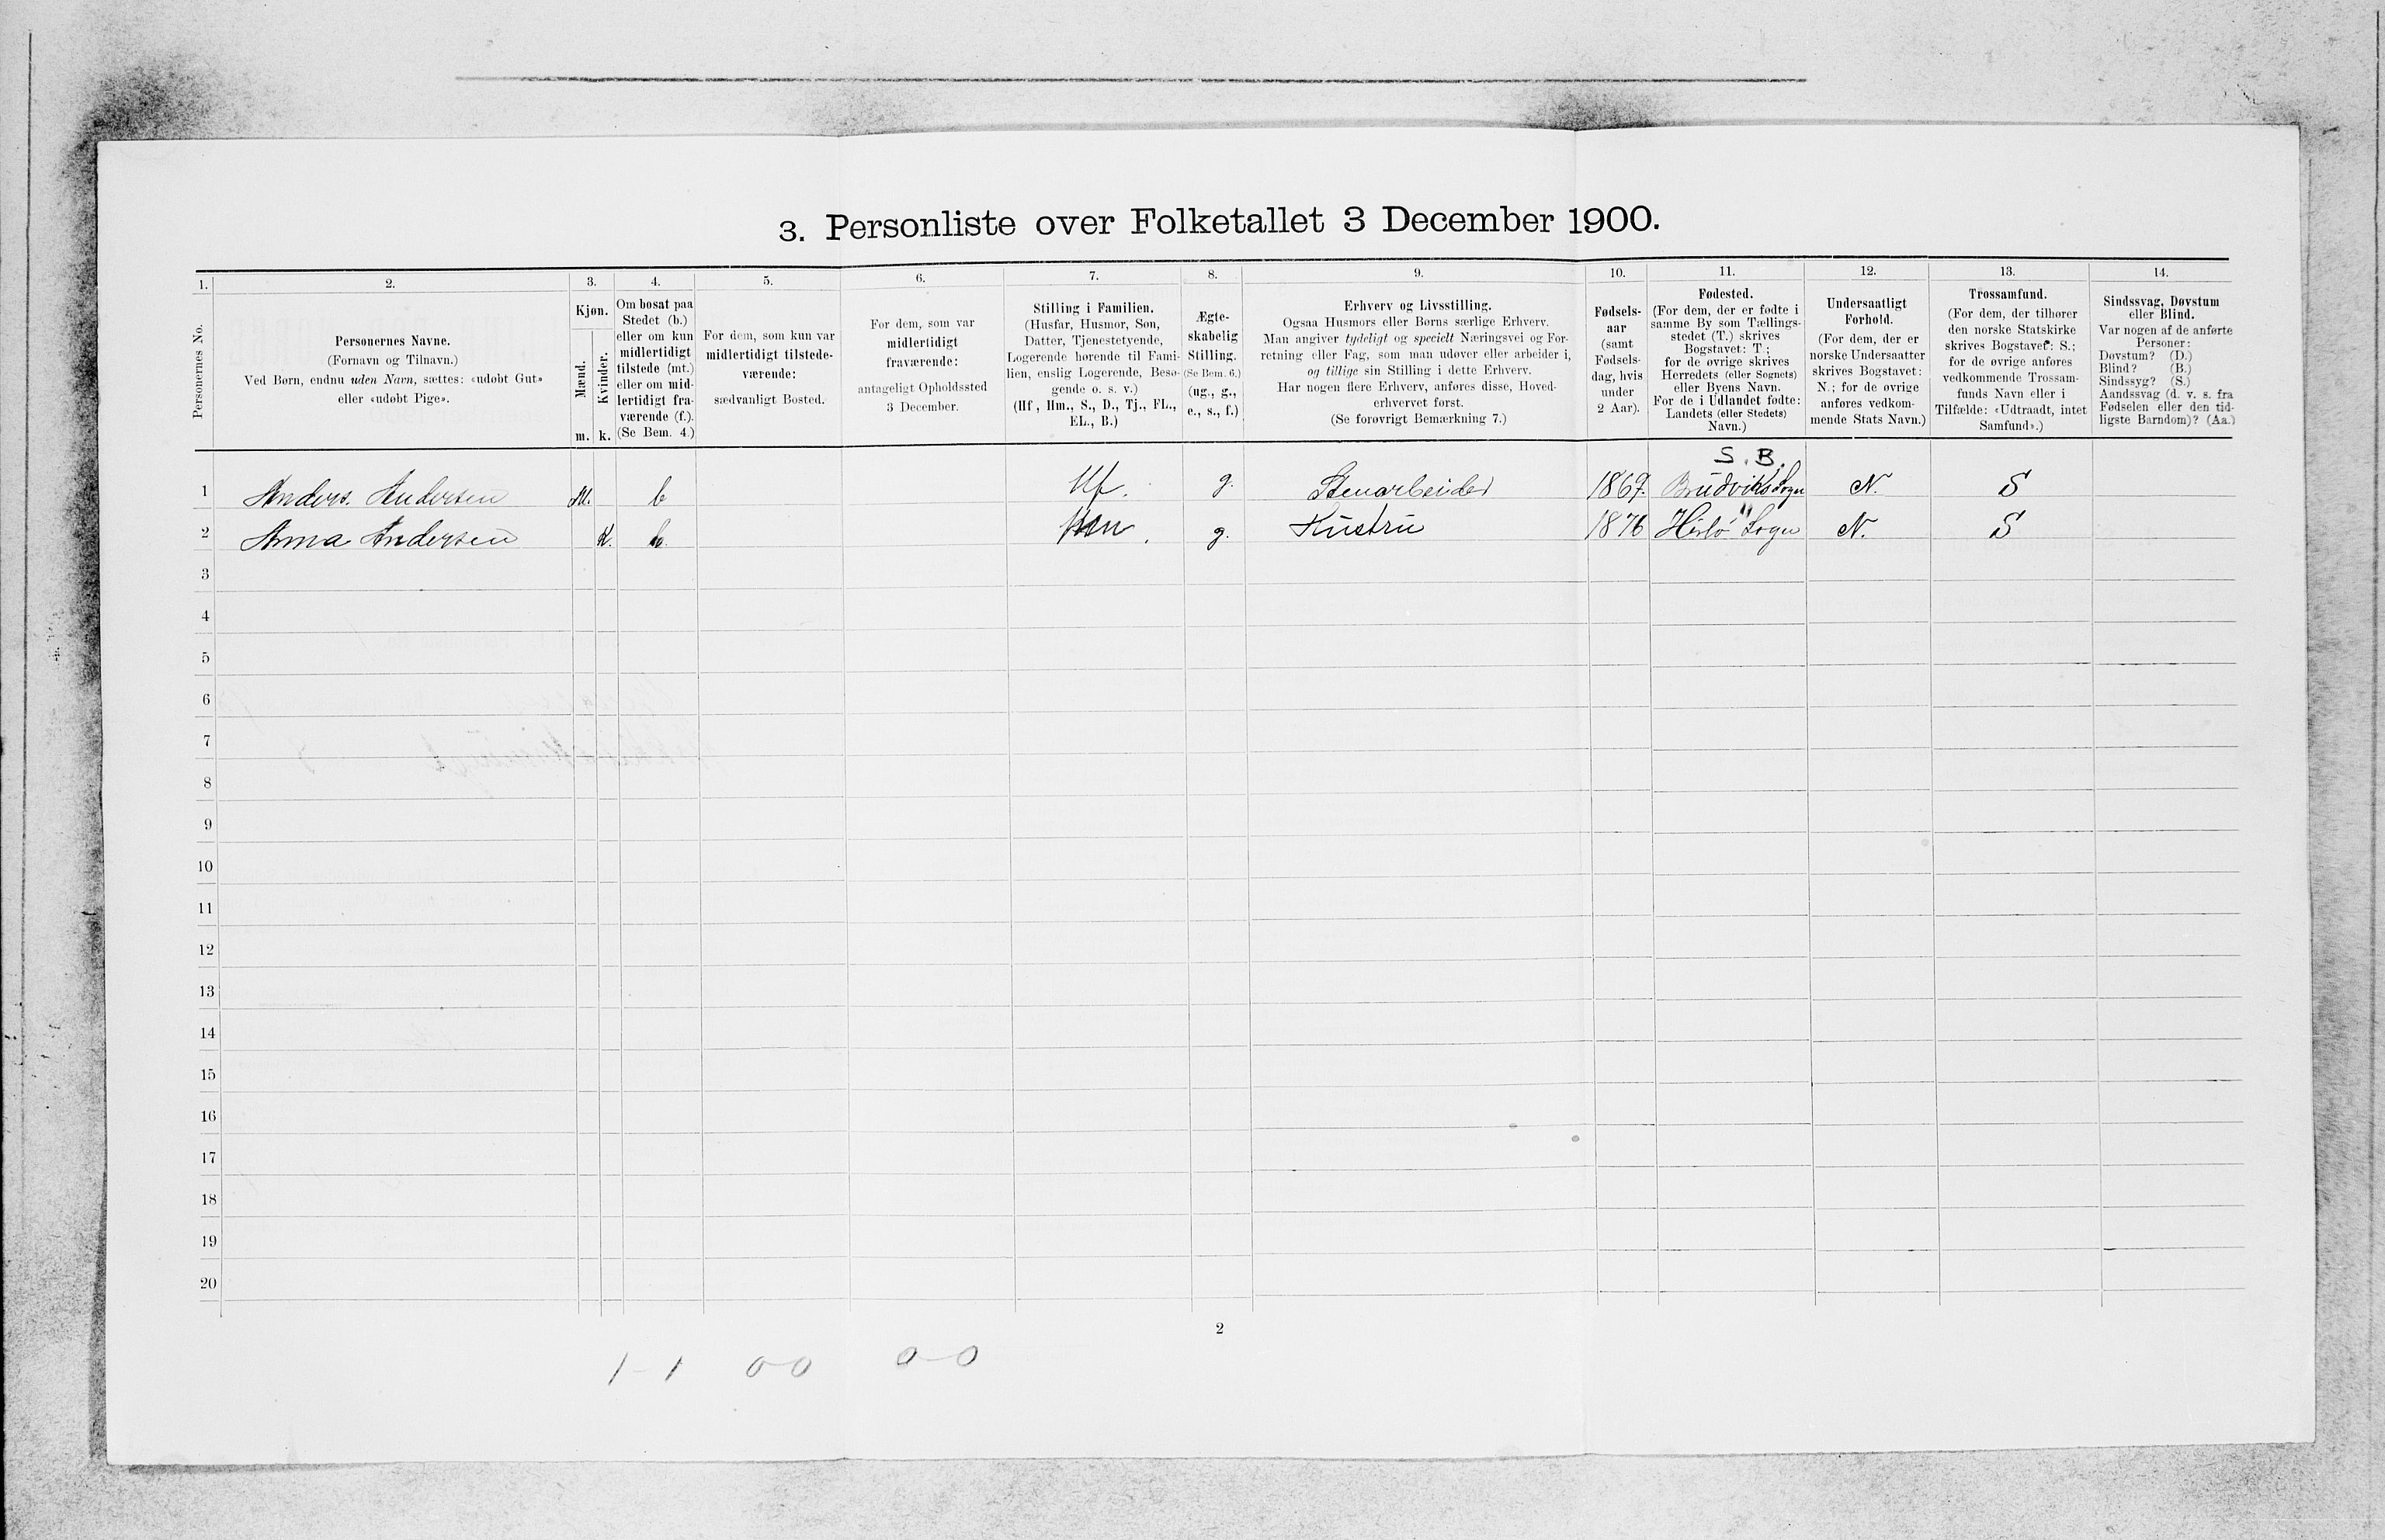 3. Personliste over Folketallet 3 December 1900.
1. 2. 3. 4. 5. 6. 7. 8. 9. 10. 11. 12. 13. 14.
Personernes No.
Personernes Navne.
(Fornavn og Tilnavn.)
Ved Børn, endnu uden Navn, sættes: «udøbt Gut»
eller «udøbt Pige».
Kjøn.
Mænd.
m.
Kvinder.
k.
Om bosat paa
Stedet (b.)
eller om kun
midlertidigt
tilstede (mt.)
eller om mid-
lertidigt fra-
værende (f.).
(Se Bem. 4.)
For dem, som kun var
midlertidigt tilstede-
værende:
sædvanligt Bosted.
For dem, som var
midlertidigt
fraværende:
antageligt Opholdssted
3 December.
Stilling i Familien.
(Husfar, Husmor, Søn,
Datter, Tjenestetyende,
Logerende hørende til Fami-
lien, enslig Logerende, Besø-
gende o. s. v.)
(Hf., Hm., S., D., Tj., FL.,
EL., B.)
Ægte-
skabelig
Stilling.
(Se Bem. 6.)
(ug., g.,
e., s., f.)
Erhverv og Livsstilling.
Ogsaa Husmors eller Børns særlige Erhverv.
Man angiver tydeligt og specielt Næringsvei og For-
retning eller Fag, som man udøver eller arbeider i,
og tillige sin Stilling i dette Erhverv.
Har nogen flere Erhverv, anføres disse, Hoved-
erhvervet først.
(Se forøvrigt Bemærkning 7.)
Fødsels-
aar
(samt
Fødsels-
dag, hvis
under
2 Aar).
Fødested.
(For dem, der er fødte i
samme By som Tællings-
stedet (T.) skrives
Bogstavet: T.;
for de øvrige skrives
Herredets (eller Sognets)
eller Byens Navn.
For de i Udlandet fødte:
Landets (eller Stedets)
Navn.)
Undersaatligt
Forhold.
(For dem, der er
norske Undersaatter
skrives Bogstavet:
N.; for de øvrige
anføres vedkom-
mende Stats Navn.)
Trossamfund.
(For dem, der tilhører
den norske Statskirke
skrives Bogstavet: S.;
for de øvrige anføres
vedkommende Trossam-
funds Navn eller i
Tilfælde: «Udtraadt, intet
Samfund».)
Sindssvag, Døvstum
eller Blind.
Var nogen af de anførte
Personer:
Døvstum? (D.)
Blind? (B.)
Sindssyg? (S.)
Aandssvag (d. v. s. fra
Fødselen eller den tid-
ligste Barndom)? (Aa.)
S. B.
1 Anders. Andersen M. b Hf. g. Stenarbeider 1869. Brudviks Sogn N. S
2 Anna Andersen K. b. Hm. g. Hustru 1876 Herlø " Sogn N. S
3
4
5
6
7
8
9
10
11
12
13
14
15
16
17
18
19
20
2
1-1 00 0-0